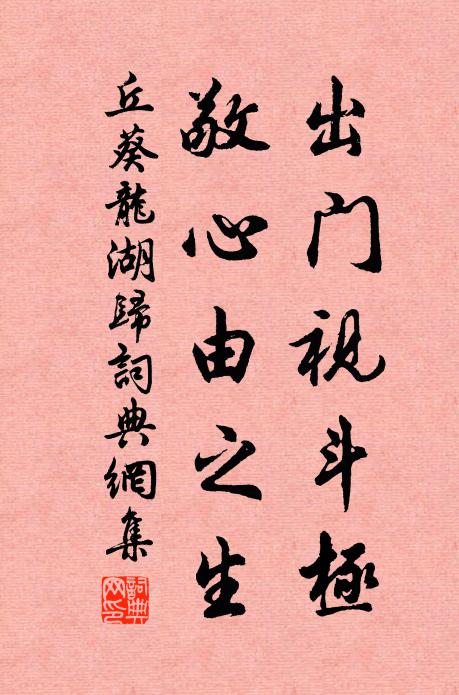 出门視斗極
敬心由之生
丘葵龍湖歸詞典網集
詞典网印